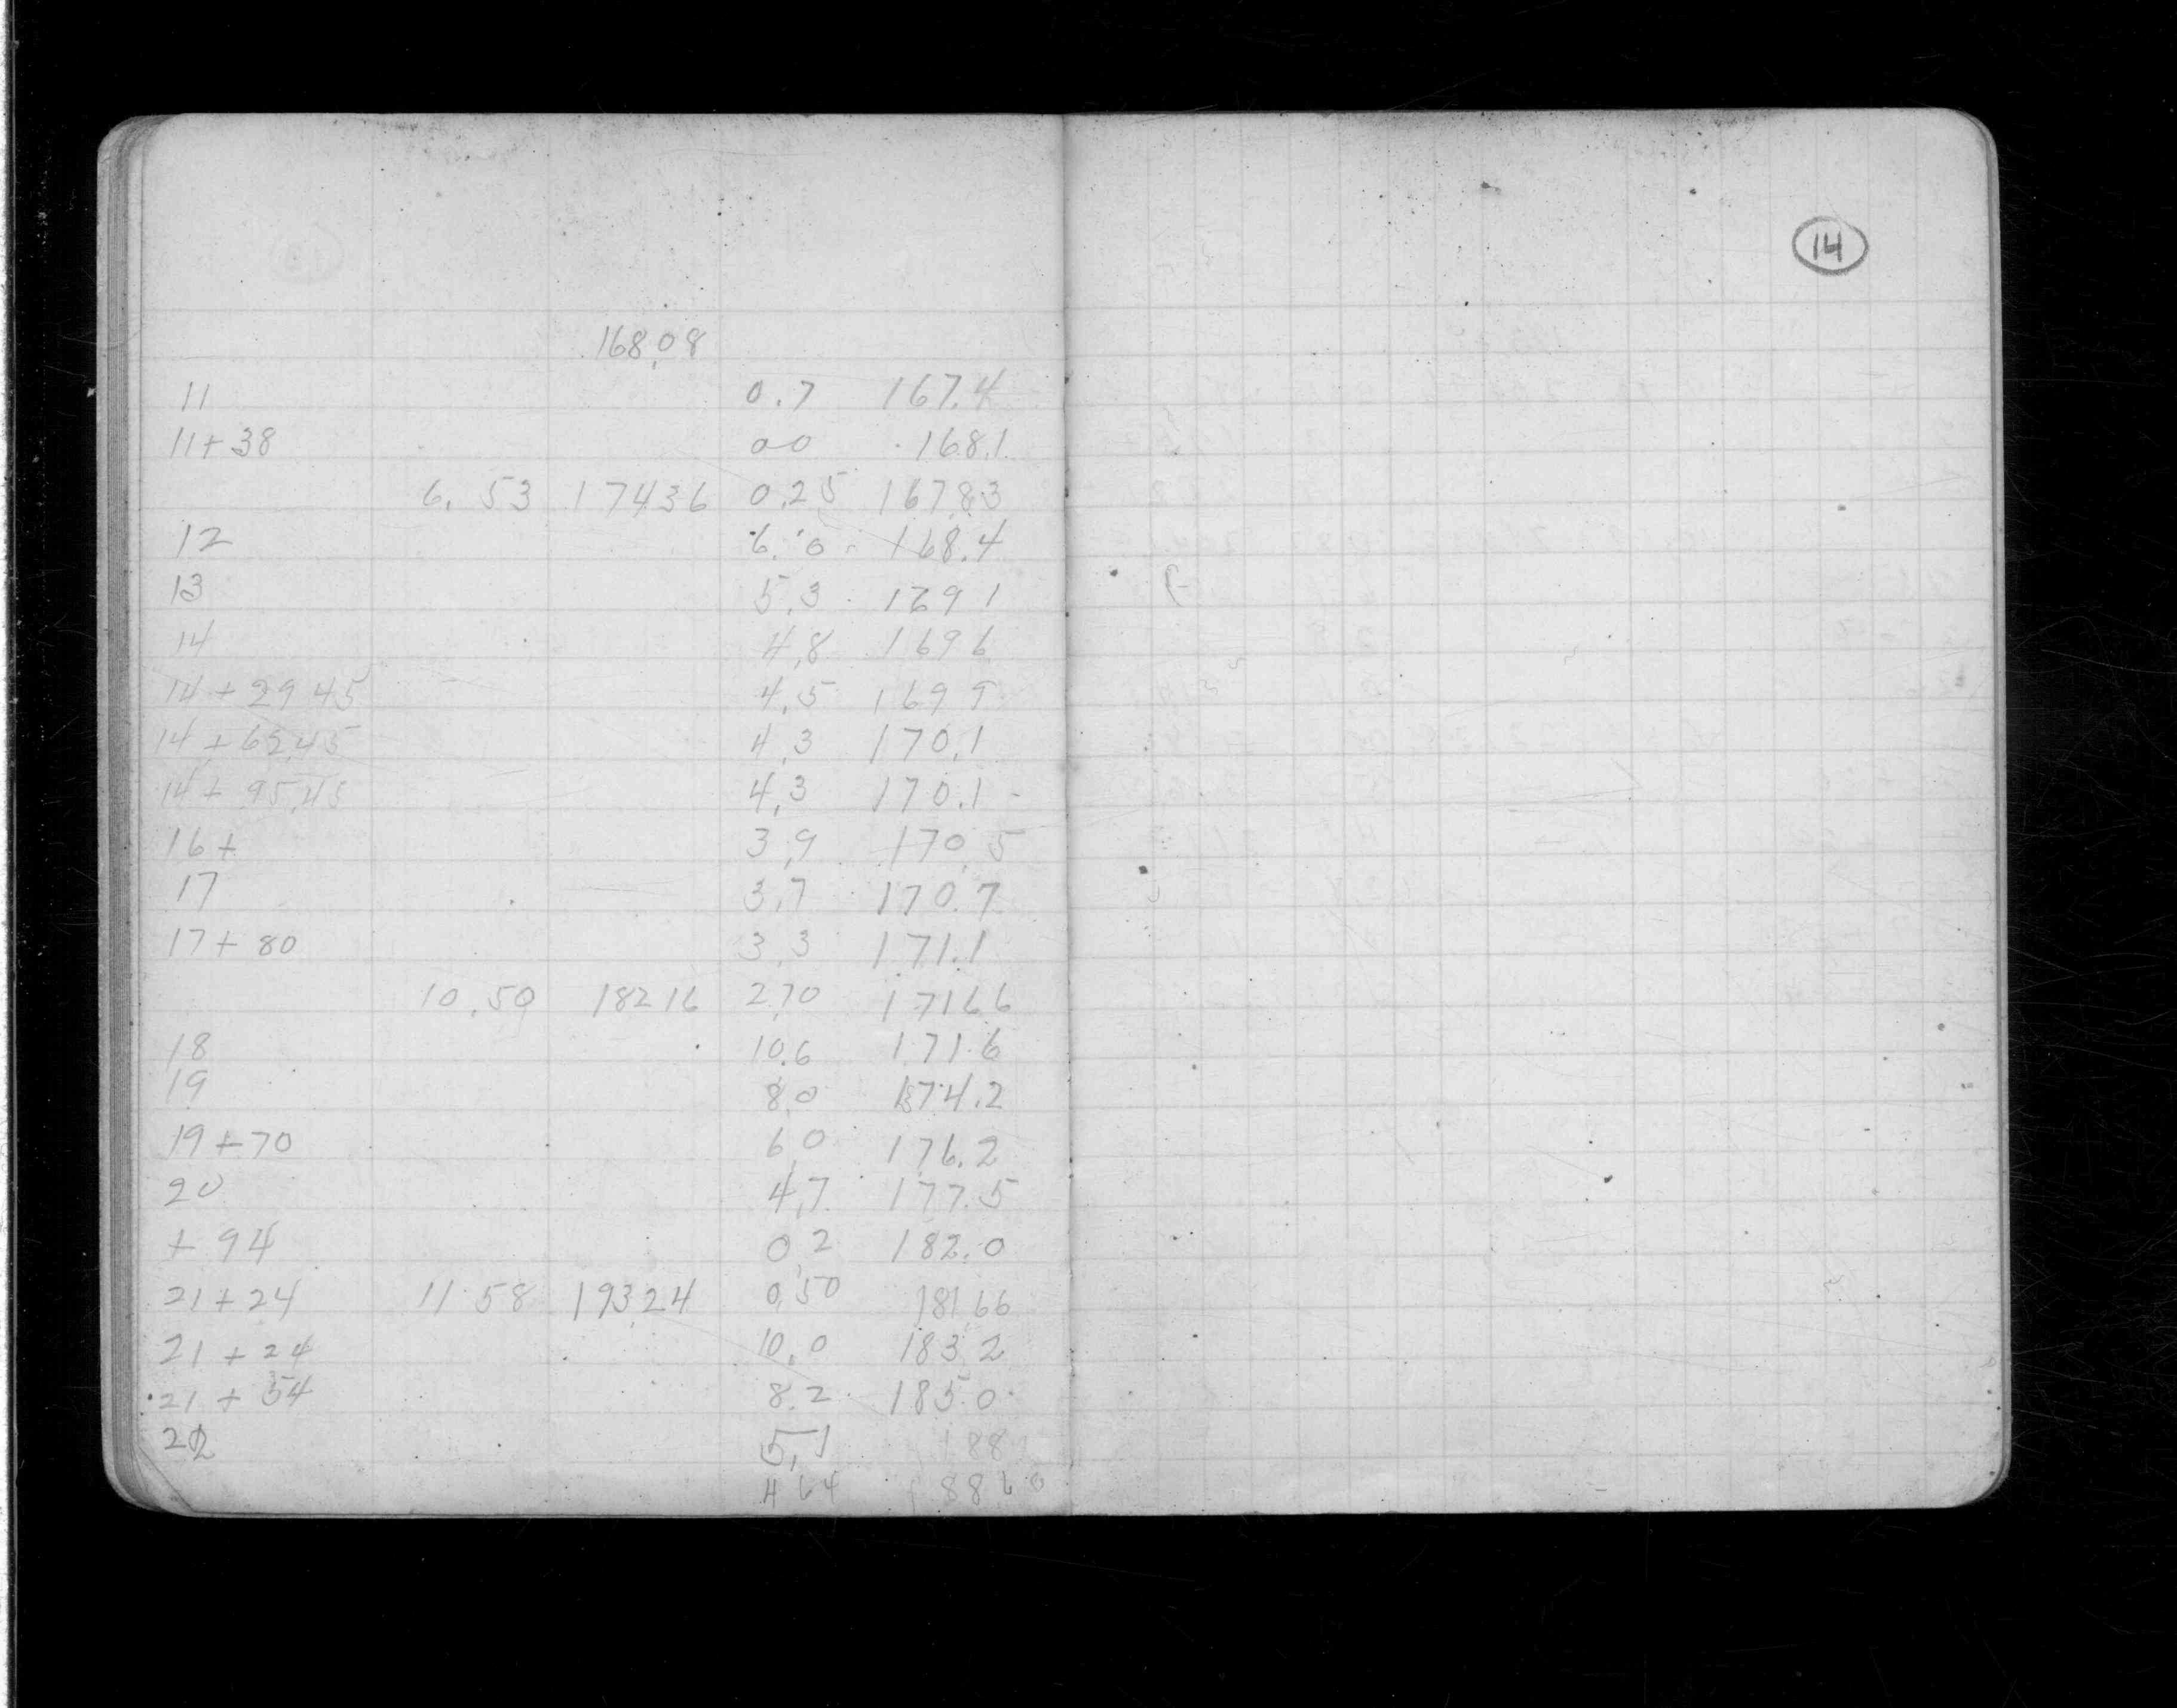 14
168.08
11 0.7 167.4
11+38 00 168.1
6.53 17436 0.25 167.83
12 6.0 168.4
13 5.3 1691
14 4.8 1696
14+29.45 4.5 1699
14+65.45 4.3 170.1
14+95.45 4.3 170.1
16+ 3.9 170.5
17 3.7 170.7
17+80 3.3 171.1
10.50 18216 2.70 17166
18 10.6 171.6
19 8.0 174.2
19+70 6.0 176.2
20 4.7 177.5
+94 0.2 182.0
21+24 11.58 193.24 0.50 181.66
21+24 10.0 183.2
21+54 8.2 185.0
22 5.1 188
4 64 188 60